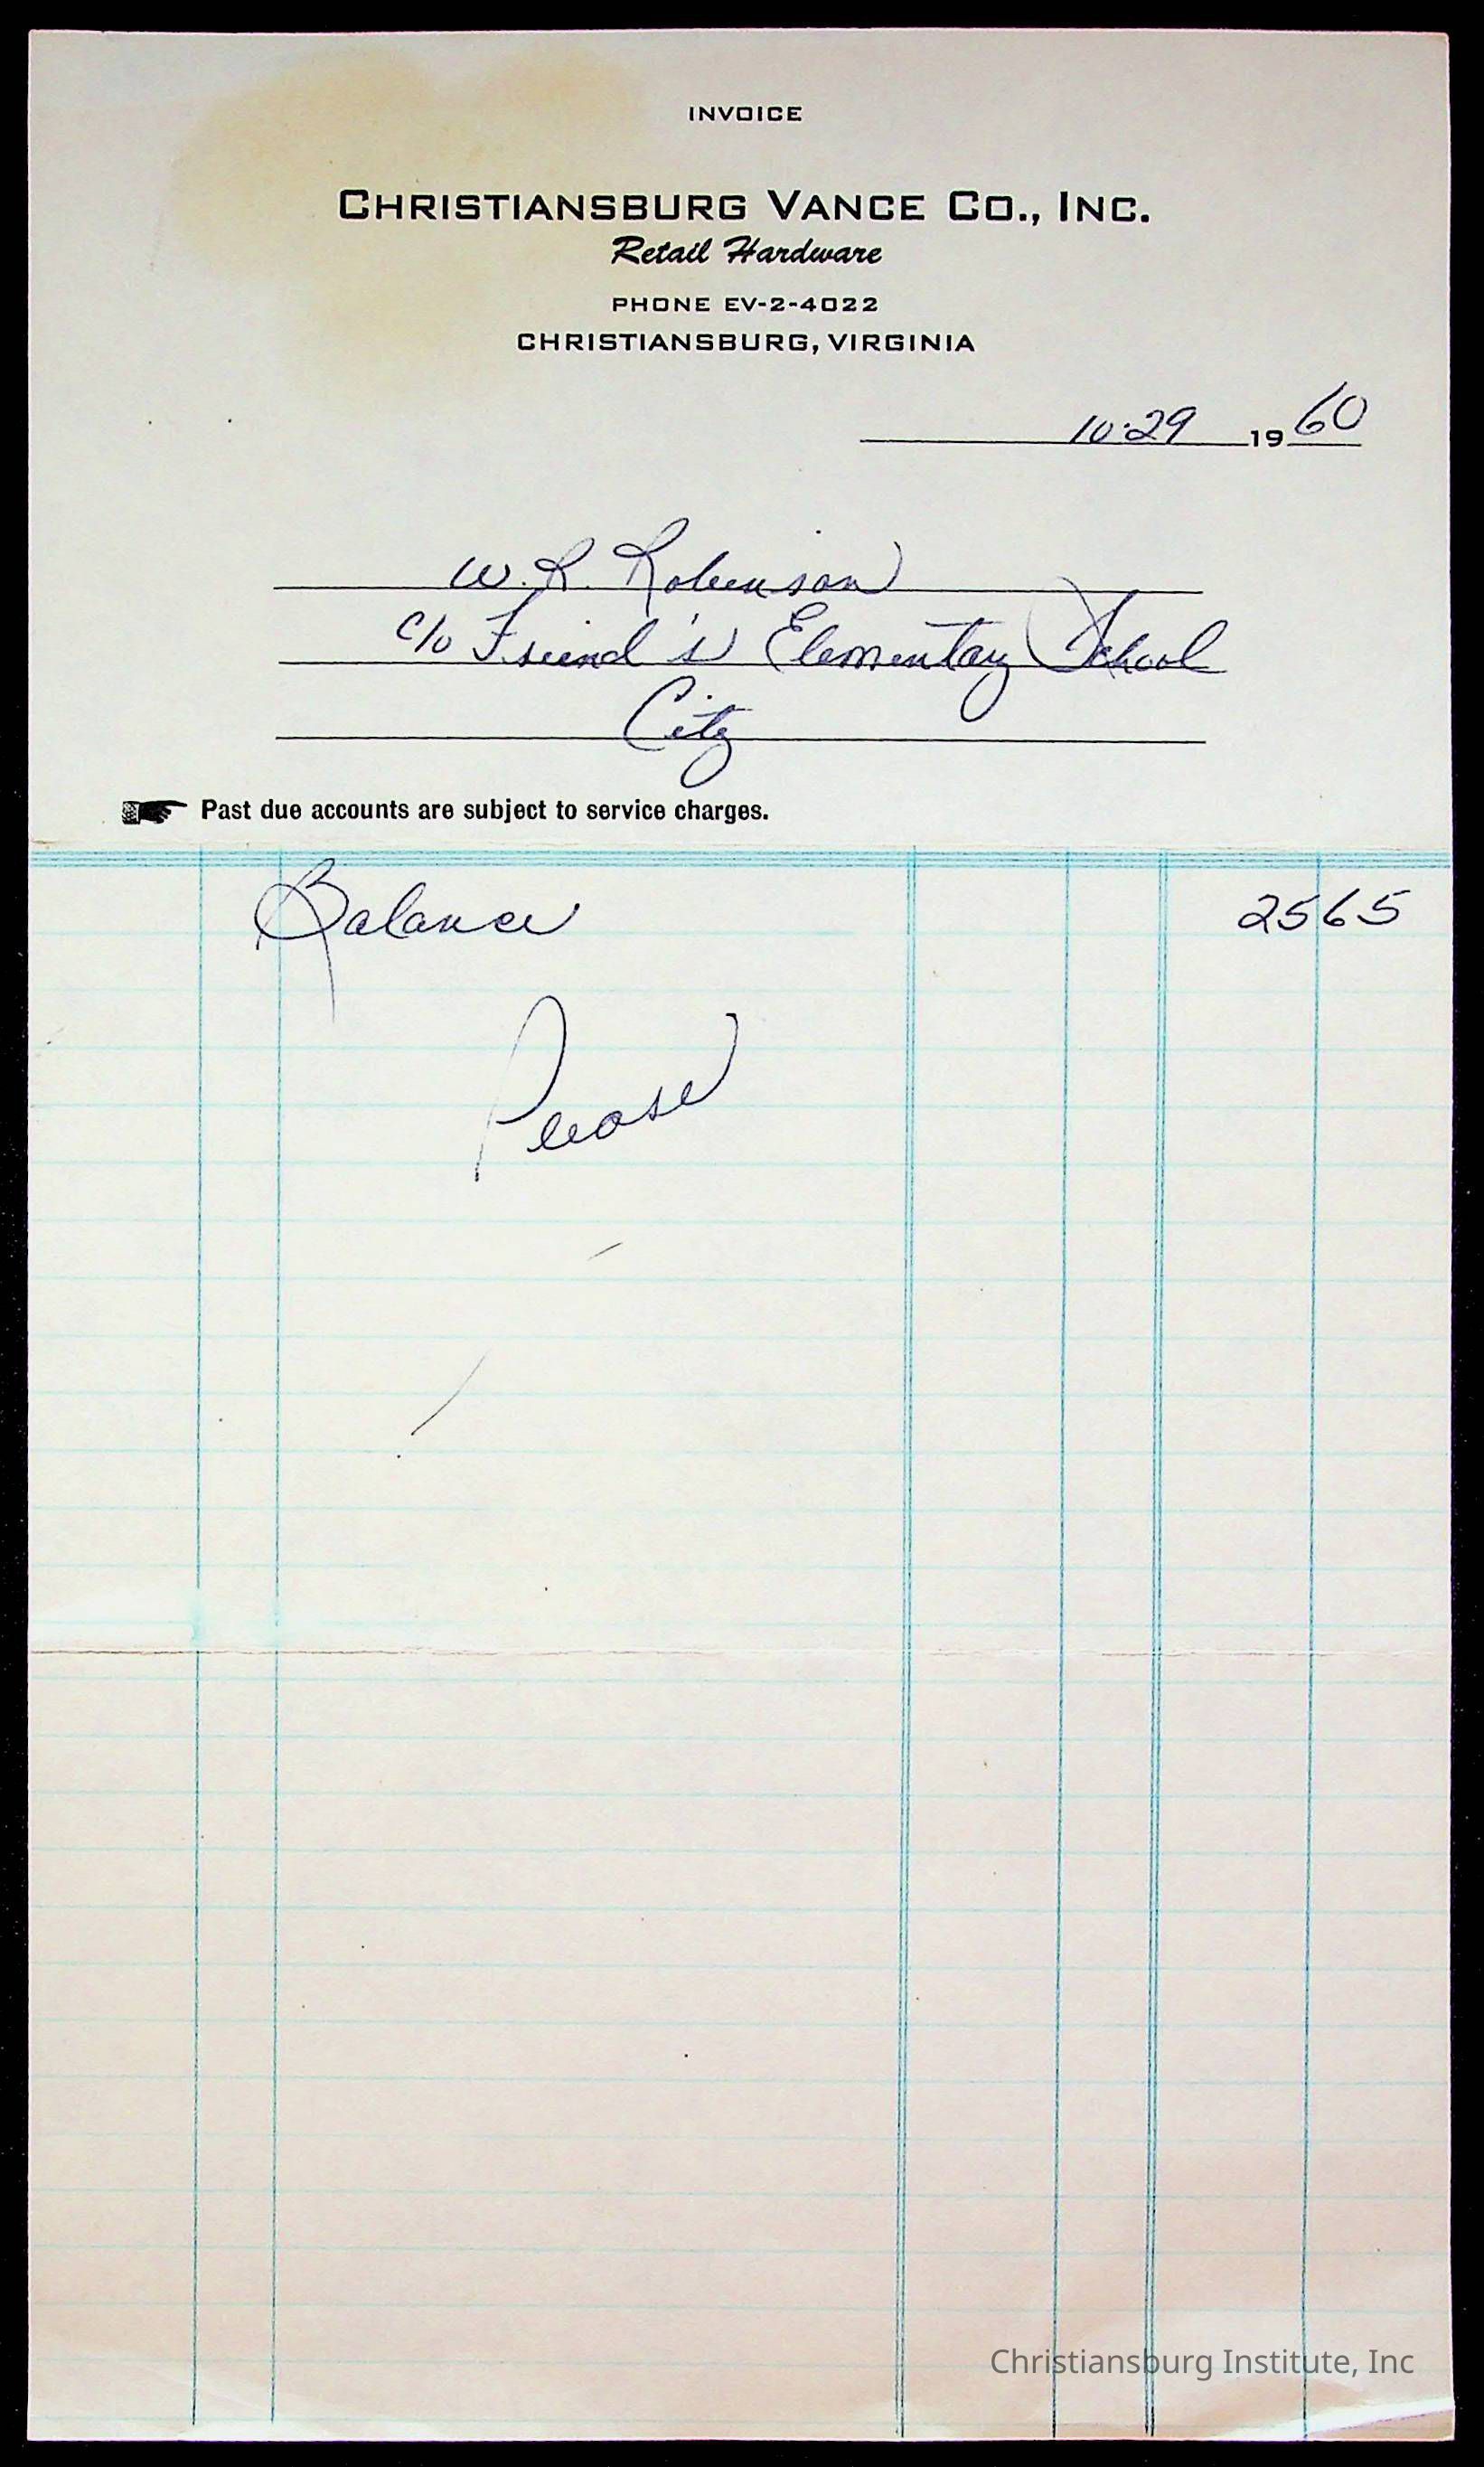 INVOICE
CHRISTIANSBURG VANCE CO., INC.
Retail Hardware
PHONE EV-2-4022
CHRISTIANSBURG, VIRGINIA
10-29 1960
W. R. Robinson
c/o Friend's Elementary School
City
Past due accounts are subject to service charges.
Balance 25 65
Please
Christiansburg Institute, Inc